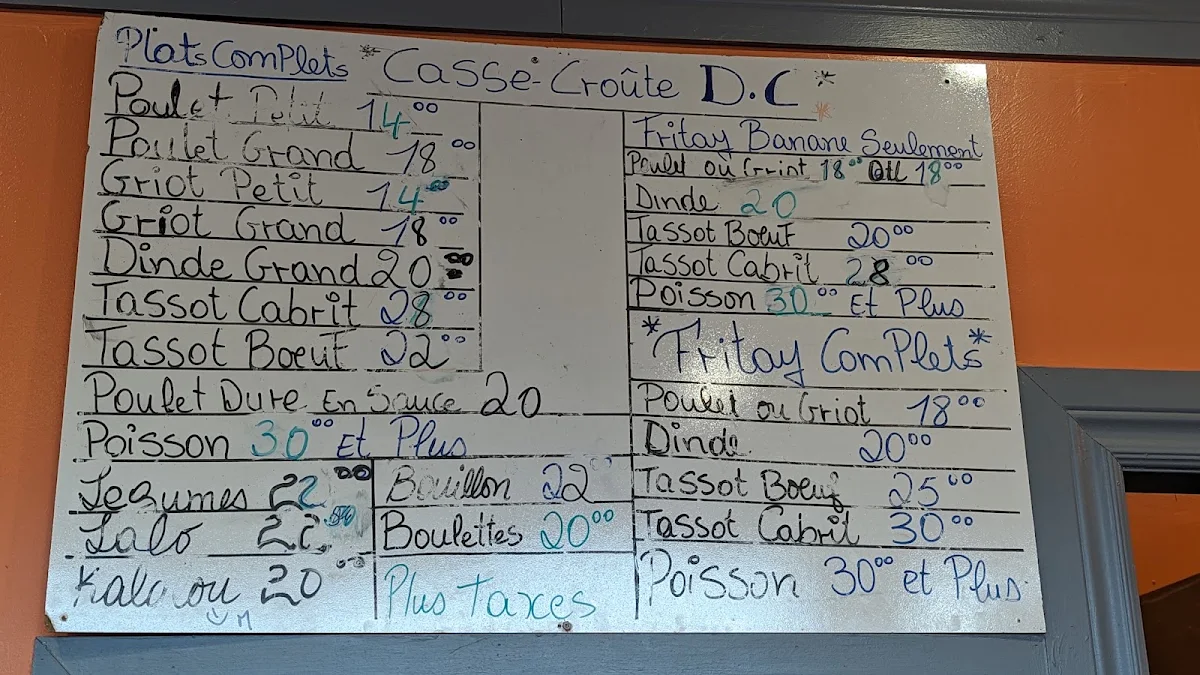 *Casse-Croûte D.C*
Plats Complets
Poulet Petit 14⁰⁰
Poulet Grand 18⁰⁰
Griot Petit 14⁰⁰
Griot Grand 18⁰⁰
Dinde Grand 20⁰⁰
Tassot Cabrit 28⁰⁰
Tassot Boeuf 22⁰⁰
Poulet Dure En Sauce 20
Poisson 30⁰⁰ Et Plus
Legumes 22⁰⁰
Lalo
Kalalou 20⁰⁰
Bouillon 22
Boulettes 20⁰⁰
Plus Taxes
Fritay Banane Seulement
Poulet où Griot 18⁰⁰ 18⁰⁰
Dinde 20
Tassot Boeuf 20⁰⁰
Tassot Cabrit 28⁰⁰
Poisson 30⁰⁰ Et Plus
*Fritay Complets*
Poulet ou Griot 18⁰⁰
Dinde 20⁰⁰
Tassot Boeuf 25⁰⁰
Tassot Cabrit 30⁰⁰
Poisson 30⁰⁰ et Plus